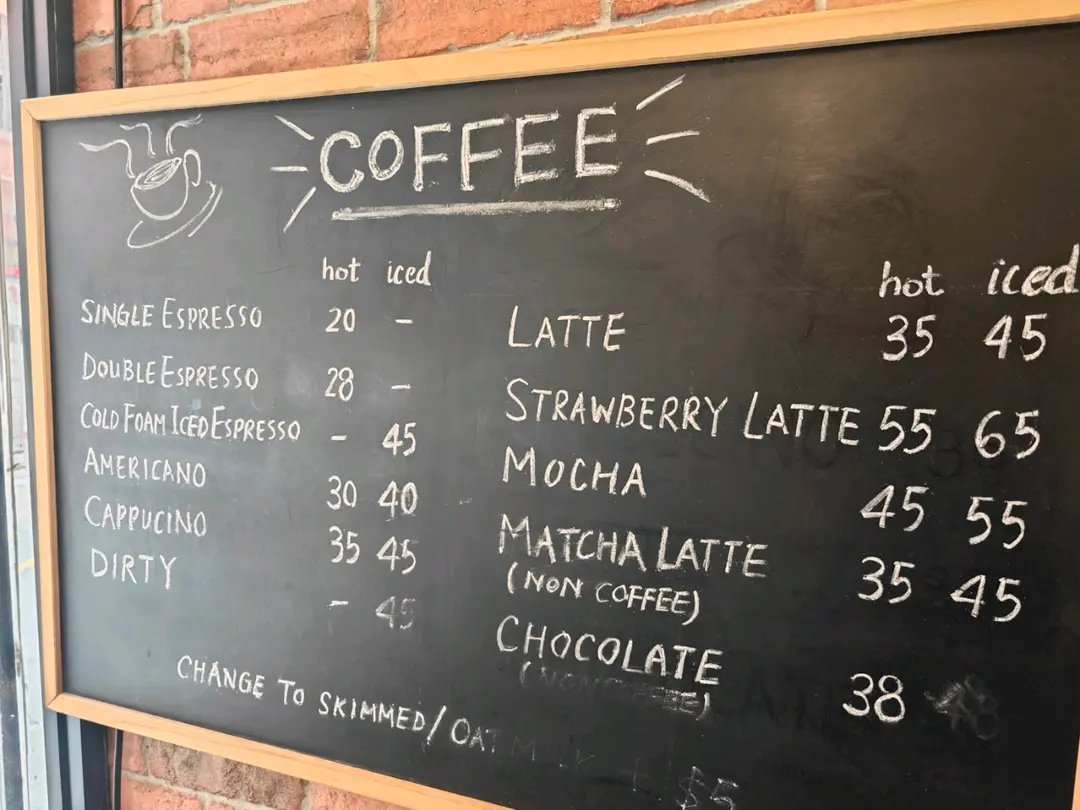 COFFEE
hot iced
SINGLE ESPRESSO 20 -
DOUBLE ESPRESSO 28 -
COLD FOAM ICED ESPRESSO - 45
AMERICANO 30 40
CAPPUCINO 35 45
DIRTY - 45
hot iced
LATTE 35 45
STRAWBERRY LATTE 55 65
MOCHA 45 55
MATCHA LATTE 35 45
(NON COFFEE)
CHOCOLATE 38 48
(NON COFFEE)
CHANGE TO SKIMMED/OAT MILK + $5